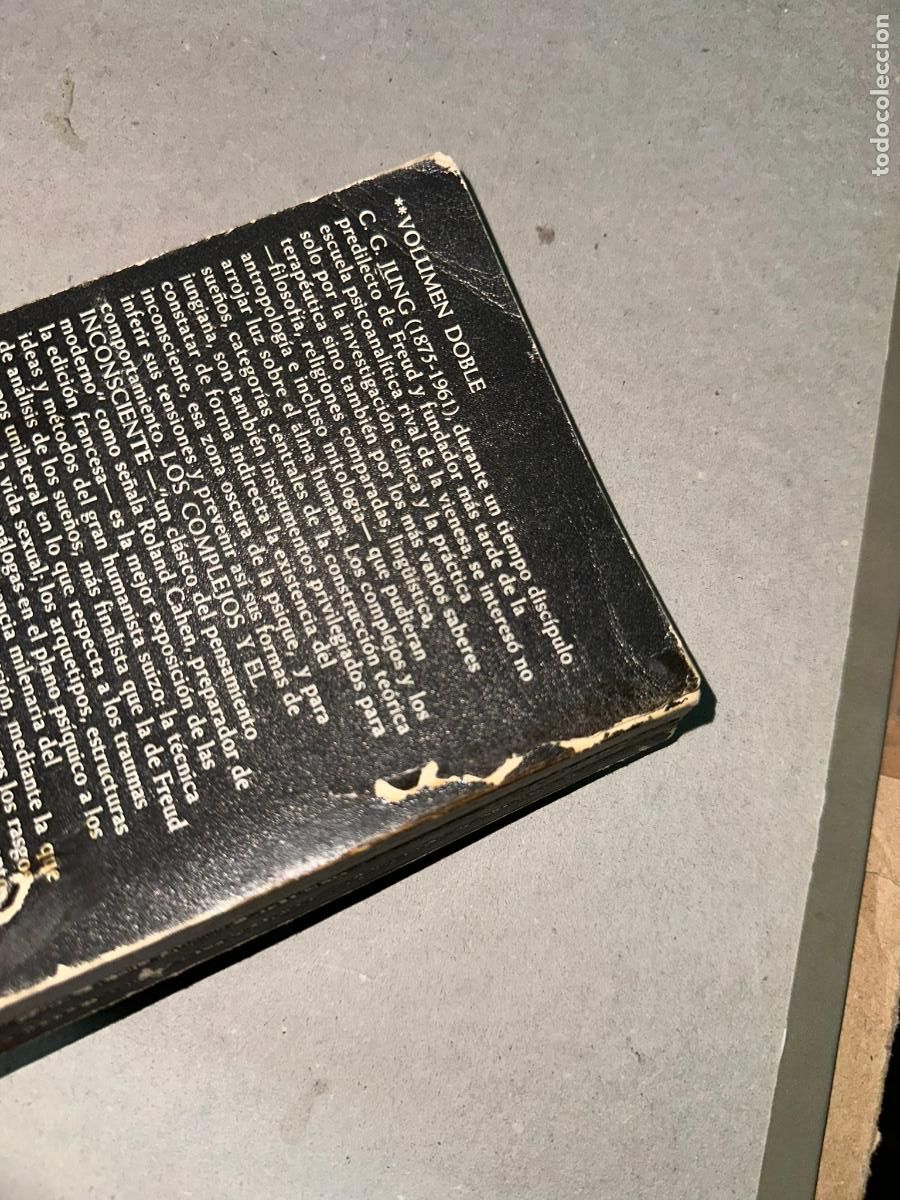 **VOLUMEN DOBLE
C. G. JUNG (1875-1961), durante un tiempo discípulo
predilecto de Freud y fundador más tarde de la
escuela psicoanalítica rival de la vienesa, se interesó no
solo por la investigación clínica y la práctica
terapéutica sino también por los más varios saberes
—filosofía, religiones comparadas, lingüística,
antropología e incluso mitología— que pudieran
arrojar luz sobre el alma humana. Los complejos y los
sueños, categorías centrales de la construcción teórica
jungiana, son también instrumentos privilegiados para
constatar de forma indirecta la existencia del
inconsciente, esa zona oscura de la psique, y para
inferir sus tensiones y prevenir así sus formas de
comportamiento. LOS COMPLEJOS Y EL
INCONSCIENTE —"un clásico del pensamiento
moderno", como señala Roland Cahen, preparador de
la edición francesa— es la mejor exposición de las
ideas y métodos del gran humanista suizo: la técnica
de análisis de los sueños, más finalista que la de Freud
unilateral en lo que respecta a los traumas
la vida sexual; los arquetipos, estructuras
álogas en el plano psíquico a los
milenaria del
mediante la que
los rasgo
todocoleccion